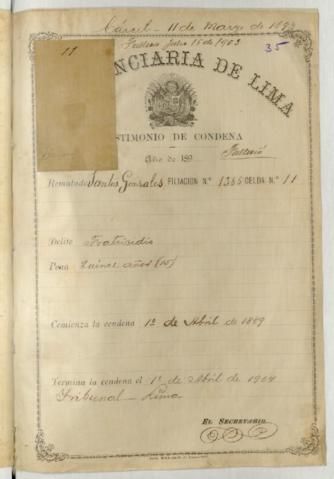 Cárcel - 11 de Marzo de 1893
Falleció Julio 15 de 1903
35
11
PENITENCIARIA DE LIMA
TESTIMONIO DE CONDENA
Año de 189
Falleció
Rematado Santos Gonzales FILIACION N.º 1385 CELDA N.º 11
Delito Fratricidio
Pena Quince años (15)
Comienza la condena 1º de Abril de 1889
Termina la condena el 1º de Abril de 1904
Tribunal - Lima
EL SECRETARIO